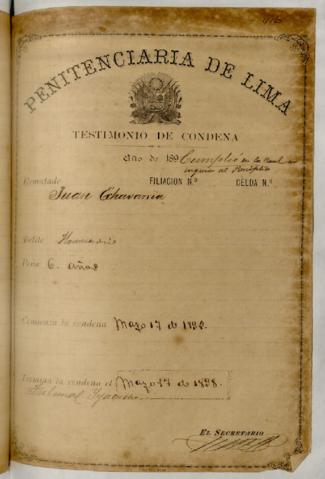 416
PENITENCIARIA DE LIMA
TESTIMONIO DE CONDENA
Año de 189 Cumplió en la
al
Rematado FILIACION N.º CELDA N.º
Juan Chavarria
Delito Homicidio
Pena 6. años
Comienza la condena Mayo 17 de 1892.
Termina la condena el Mayo 17 de 1898.
Tribunal
EL SECRETARIO